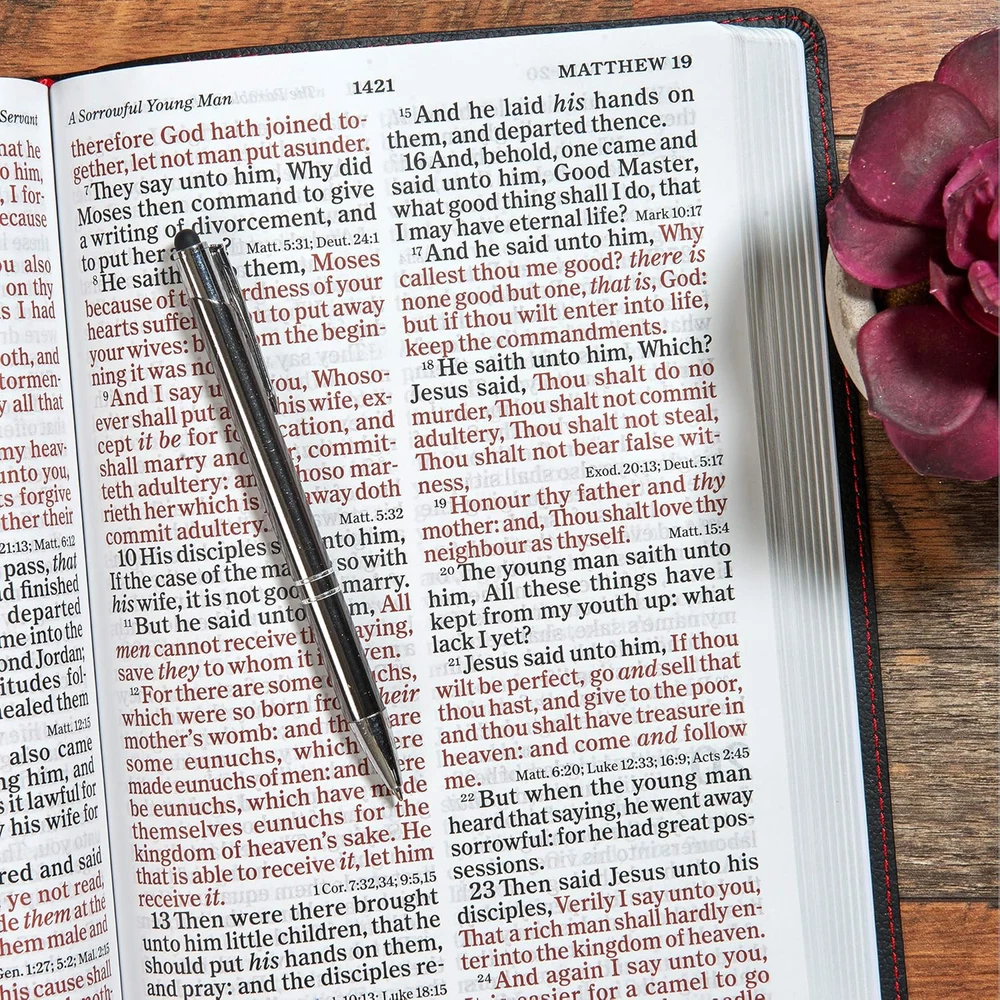 Servant
hat he
o him,
, I for-
ecause
ou also
on thy
s I had
oth, and
tormen-
y all that
my heav-
unto you,
ts forgive
ther their
21:13; Matt. 6:12
pass, that
d finished
departed
me into the
ond Jordan;
itudes fol-
healed them
Matt. 12:15
also came
ng him, and
s it lawful for
y his wife for
red and said
ye not read,
de them at the
hem male and
Gen. 1:27; 5:2; Mal. 2:15
his cause shall
A Sorrowful Young Man
1421
MATTHEW 19
therefore God hath joined to-
gether, let not man put asunder.
7 They say unto him, Why did
Moses then command to give
a writing of divorcement, and
to put her a ? Matt. 5:31; Deut. 24:1
8 He saith them, Moses
because of t rdness of your
hearts suffe ou to put away
your wives: b m the begin-
ning it was no
9 And I say u you, Whoso-
ever shall put a his wife, ex-
cept it be for fo cation, and
shall marry ano commit-
teth adultery: an hoso mar-
rieth her which is away doth
commit adultery. Matt. 5:32
10 His disciples s nto him,
If the case of the ma so with
his wife, it is not goo marry.
11 But he said unto m, All
men cannot receive th aying,
save they to whom it i ven.
12 For there are some chs,
which were so born fro heir
mother's womb: and th are
some eunuchs, which ere
made eunuchs of men: and ere
be eunuchs, which have made
themselves eunuchs for the
kingdom of heaven's sake. He
that is able to receive it, let him
receive it. 1 Cor. 7:32,34; 9:5,15
13 Then were there brought
unto him little children, that he
should put his hands on them,
and pray: and the disciples re-
19:13; Luke 18:15
15 And he laid his hands on
them, and departed thence.
16 And, behold, one came and
said unto him, Good Master,
what good thing shall I do, that
I may have eternal life? Mark 10:17
17 And he said unto him, Why
callest thou me good? there is
none good but one, that is, God:
but if thou wilt enter into life,
keep the commandments.
18 He saith unto him, Which?
Jesus said, Thou shalt do no
murder, Thou shalt not commit
adultery, Thou shalt not steal,
Thou shalt not bear false wit-
ness, Exod. 20:13; Deut. 5:17
19 Honour thy father and thy
mother: and, Thou shalt love thy
neighbour as thyself. Matt. 15:4
20 The young man saith unto
him, All these things have I
kept from my youth up: what
lack I yet?
21 Jesus said unto him, If thou
wilt be perfect, go and sell that
thou hast, and give to the poor,
and thou shalt have treasure in
heaven: and come and follow
me. Matt. 6:20; Luke 12:33; 16:9; Acts 2:45
22 But when the young man
heard that saying, he went away
sorrowful: for he had great pos-
sessions.
23 Then said Jesus unto his
disciples, Verily I say unto you,
That a rich man shall hardly en-
ter into the kingdom of heaven.
24 And again I say unto you,
easier for a camel to go